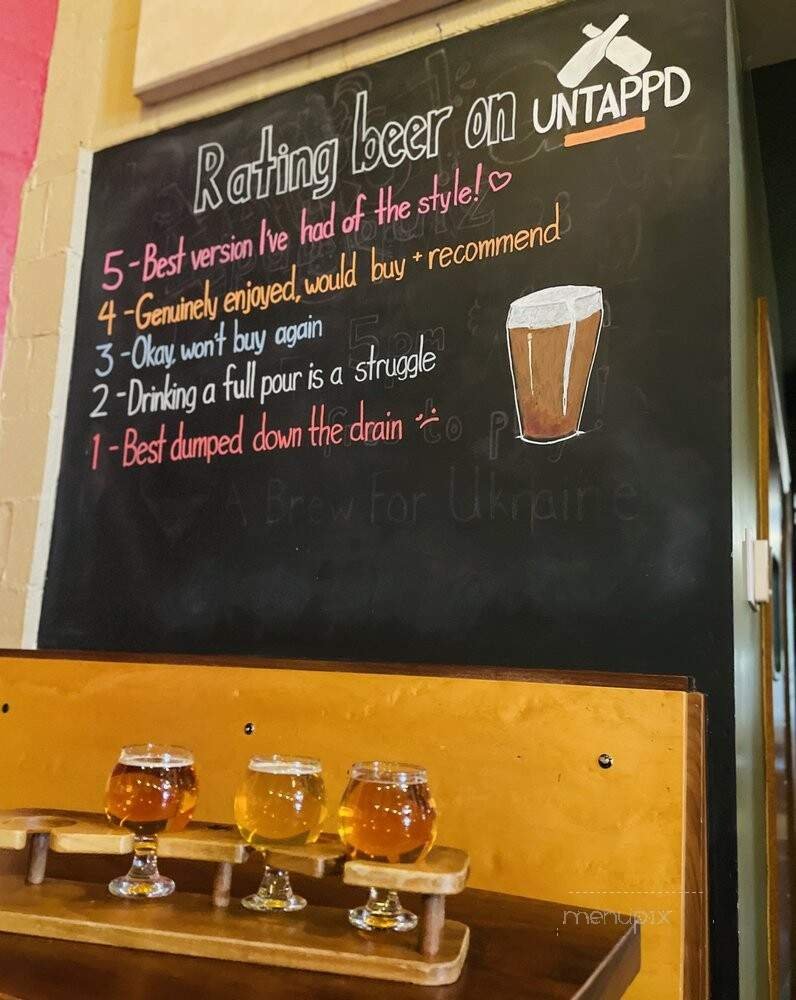 Rating beer on UNTAPPD
5 - Best version I've had of the style! ♡
4 - Genuinely enjoyed, would buy + recommend
3 - Okay, won't buy again
2 - Drinking a full pour is a struggle
1 - Best dumped down the drain
5pm
free to play!
A Brew For Ukraine
menupix